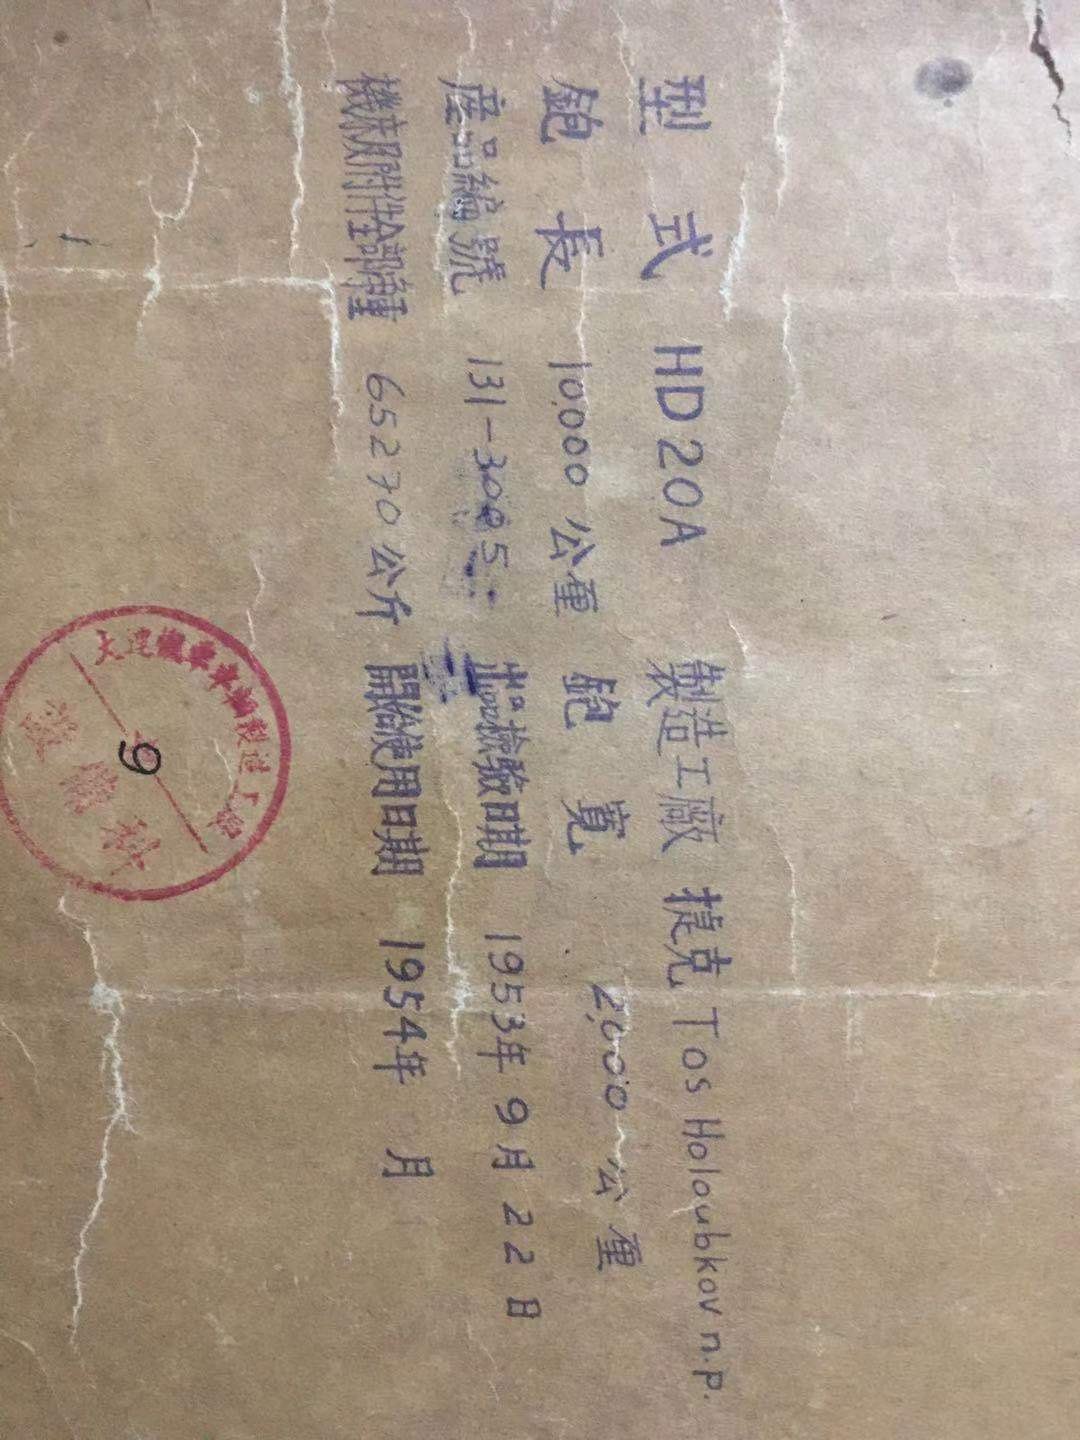 型式 HD20A 製造工廠 捷克 Tos Holoubkov n.p.
鉋長 10,000 公厘 鉋寬 2,000 公厘
產品編號 131-3005 出品檢驗日期 1953年9月22日
機床及附件全部淨重 65270公斤 開始使用日期 1954年 月
大連機車車輛製造工廠
設備科
9